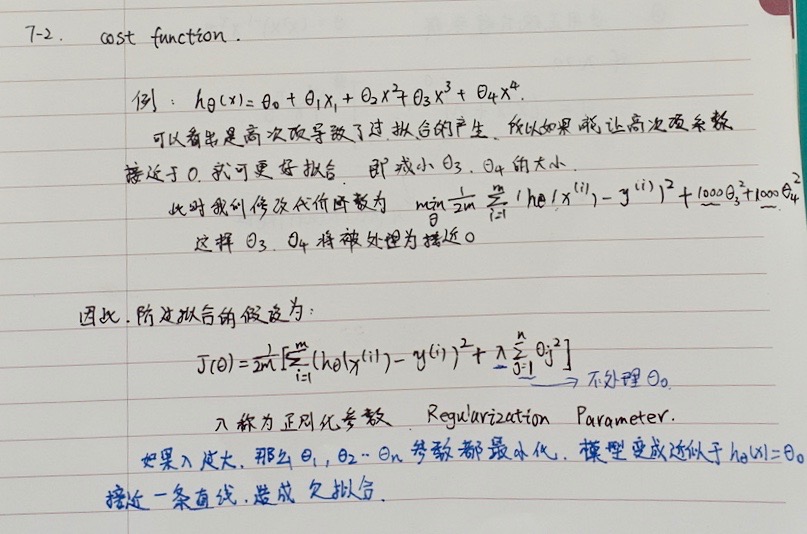 7-2. cost function.
例: hθ(x)=θ0+θ1x1+θ2x²+θ3x³+θ4x⁴.
可以看出是高次项导致了过拟合的产生, 所以如果能让高次项系数
接近于0, 就可更好拟合. 即减小θ3、θ4的大小.
此时我们修改代价函数为 min θ 1/2m Σ i=1 m (hθ(x⁽ⁱ⁾)-y⁽ⁱ⁾)²+1000θ3²+1000θ4²
这样θ3、θ4将被处理为接近0
因此, 防过拟合的假设为:
J(θ)=1/2m[Σ i=1 m (hθ(x⁽ⁱ⁾)-y⁽ⁱ⁾)²+λ Σ j=1 n θj²]
→ 不处理θ0.
λ称为正则化参数 Regularization Parameter.
如果λ过大, 那么θ1, θ2…θn参数都最小化, 模型变成近似于hθ(x)=θ0
接近一条直线, 造成欠拟合.